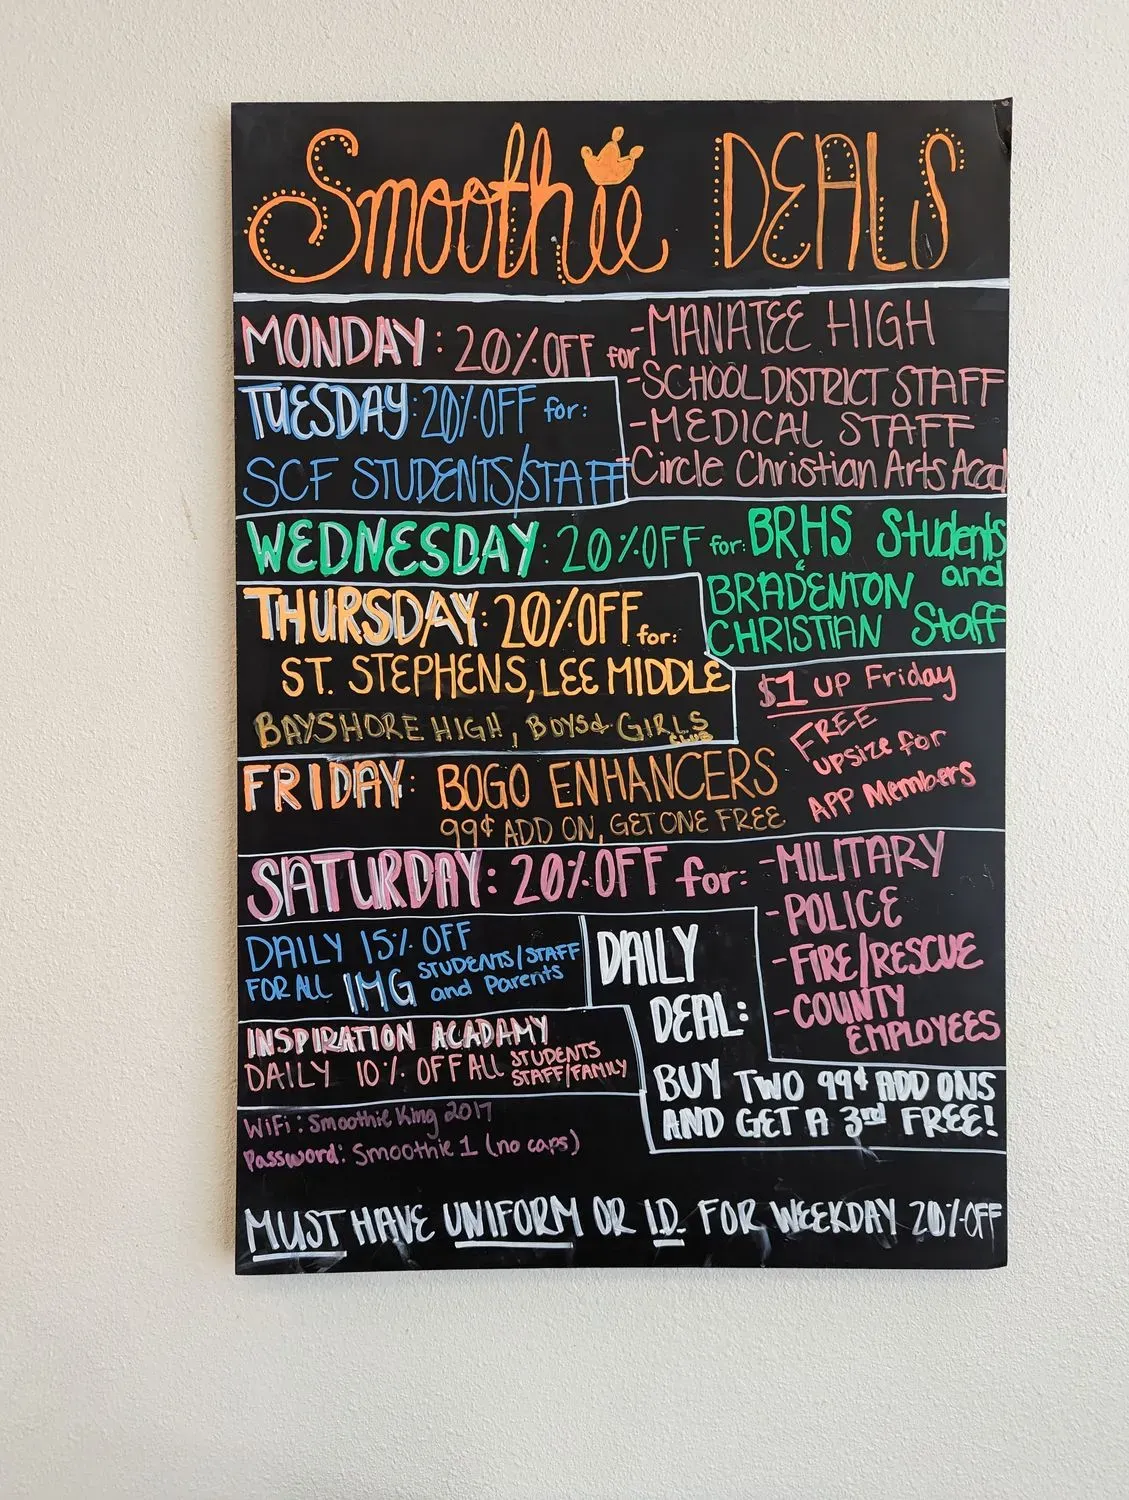 Smoothie DEALS
MONDAY: 20% OFF for -MANATEE HIGH
-SCHOOL DISTRICT STAFF
-MEDICAL STAFF
-Circle Christian Arts Acad
TUESDAY: 20% OFF for:
SCF STUDENTS/STAFF
WEDNESDAY: 20% OFF for: BRHS Students
and
& BRADENTON
CHRISTIAN Staff
THURSDAY: 20% OFF for:
ST. STEPHENS, LEE MIDDLE
BAYSHORE HIGH, BOYS & GIRLS
CLUB
$1 UP Friday
FREE
upsize for
APP Members
FRIDAY: BOGO ENHANCERS
99¢ ADD ON, GET ONE FREE
SATURDAY: 20% OFF for: -MILITARY
-POLICE
-FIRE/RESCUE
-COUNTY
EMPLOYEES
DAILY 15% OFF
FOR ALL IMG STUDENTS/STAFF
and Parents
DAILY
DEAL:
BUY TWO 99¢ ADD ONS
AND GET A 3rd FREE!
INSPIRATION ACADAMY
DAILY 10% OFF ALL STUDENTS
STAFF/FAMILY
WiFi: Smoothie King 2017
Password: Smoothie 1 (no caps)
MUST HAVE UNIFORM OR I.D. FOR WEEKDAY 20% OFF